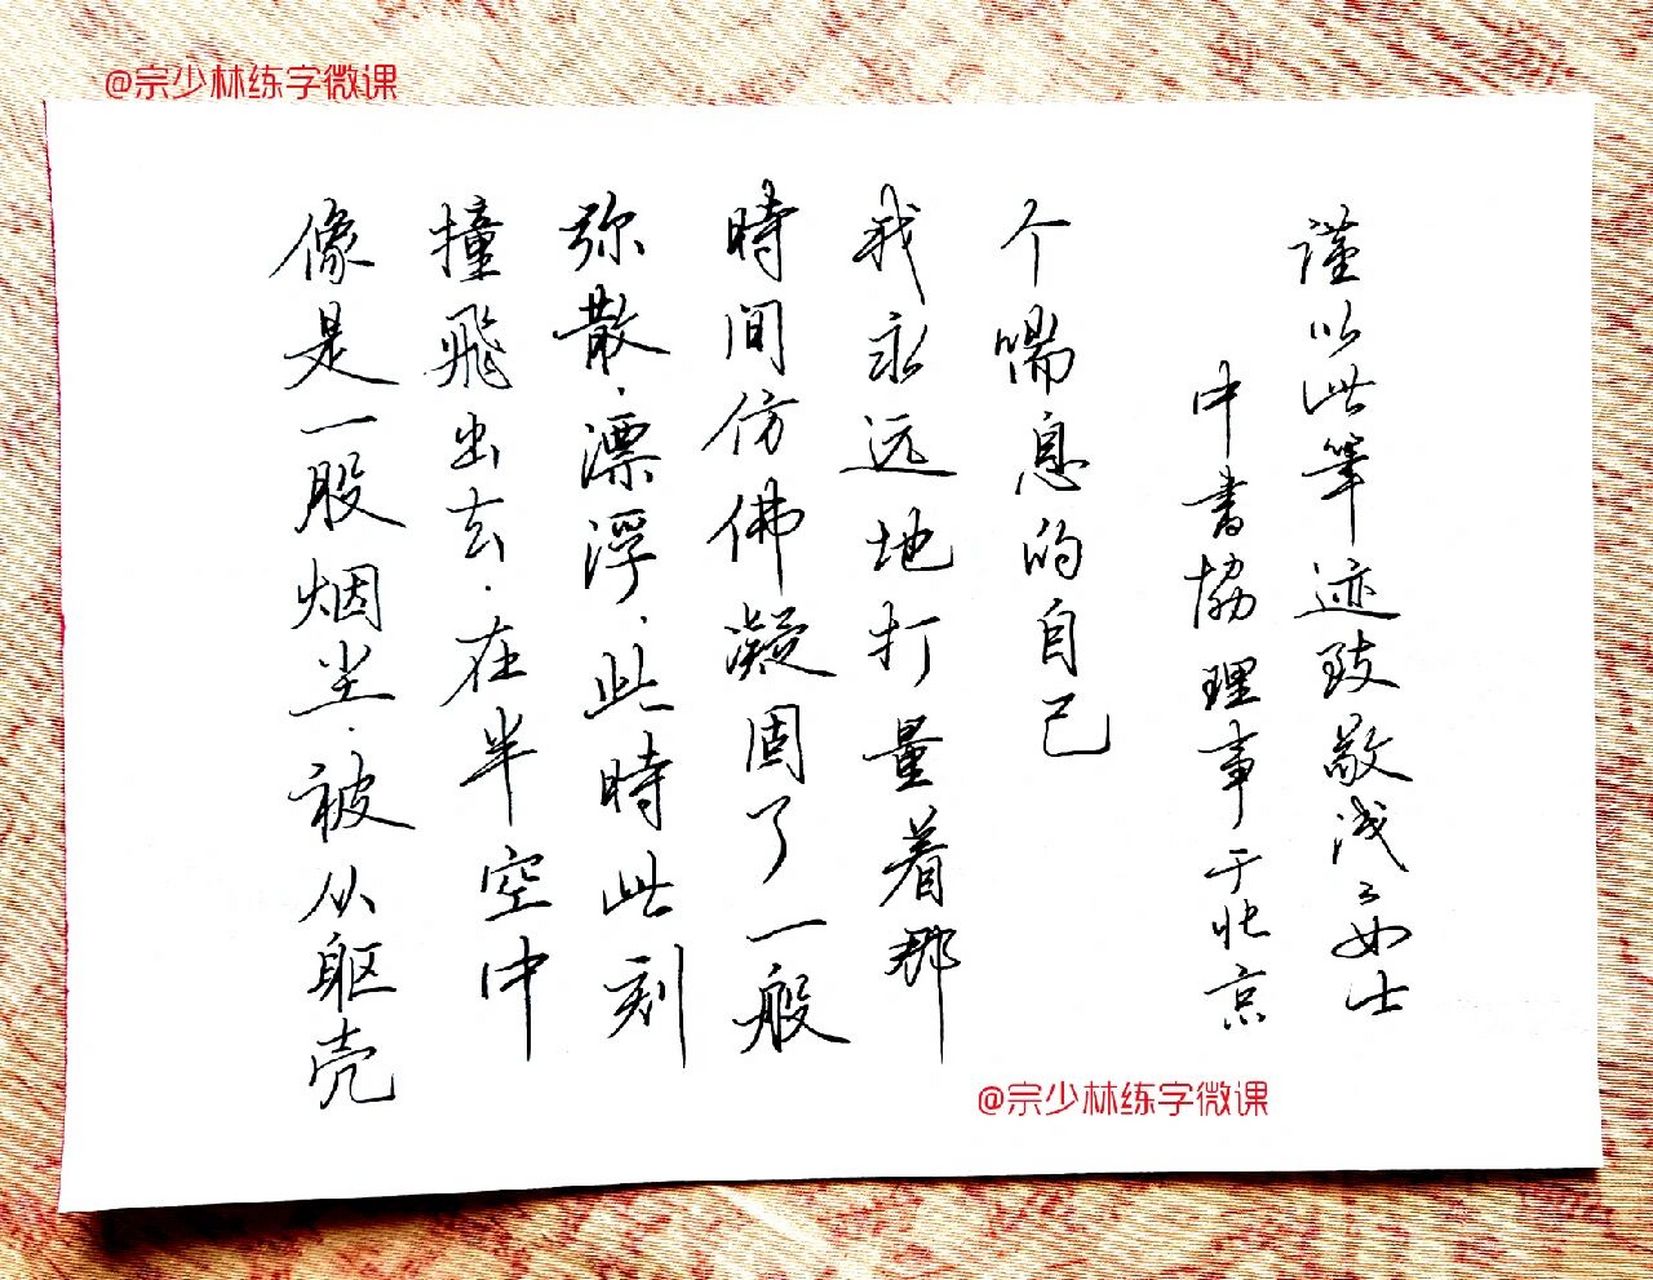 @宗少林练字微课
像是一股烟尘·被从躯壳
撞飛出去·在半空中
弥散·漂浮·此時此刻
時间仿佛凝固了一般
我永远地打量着那
个喘息的自己
謹以此筆迹致敬浅女士
中書協理事于北京
@宗少林练字微课